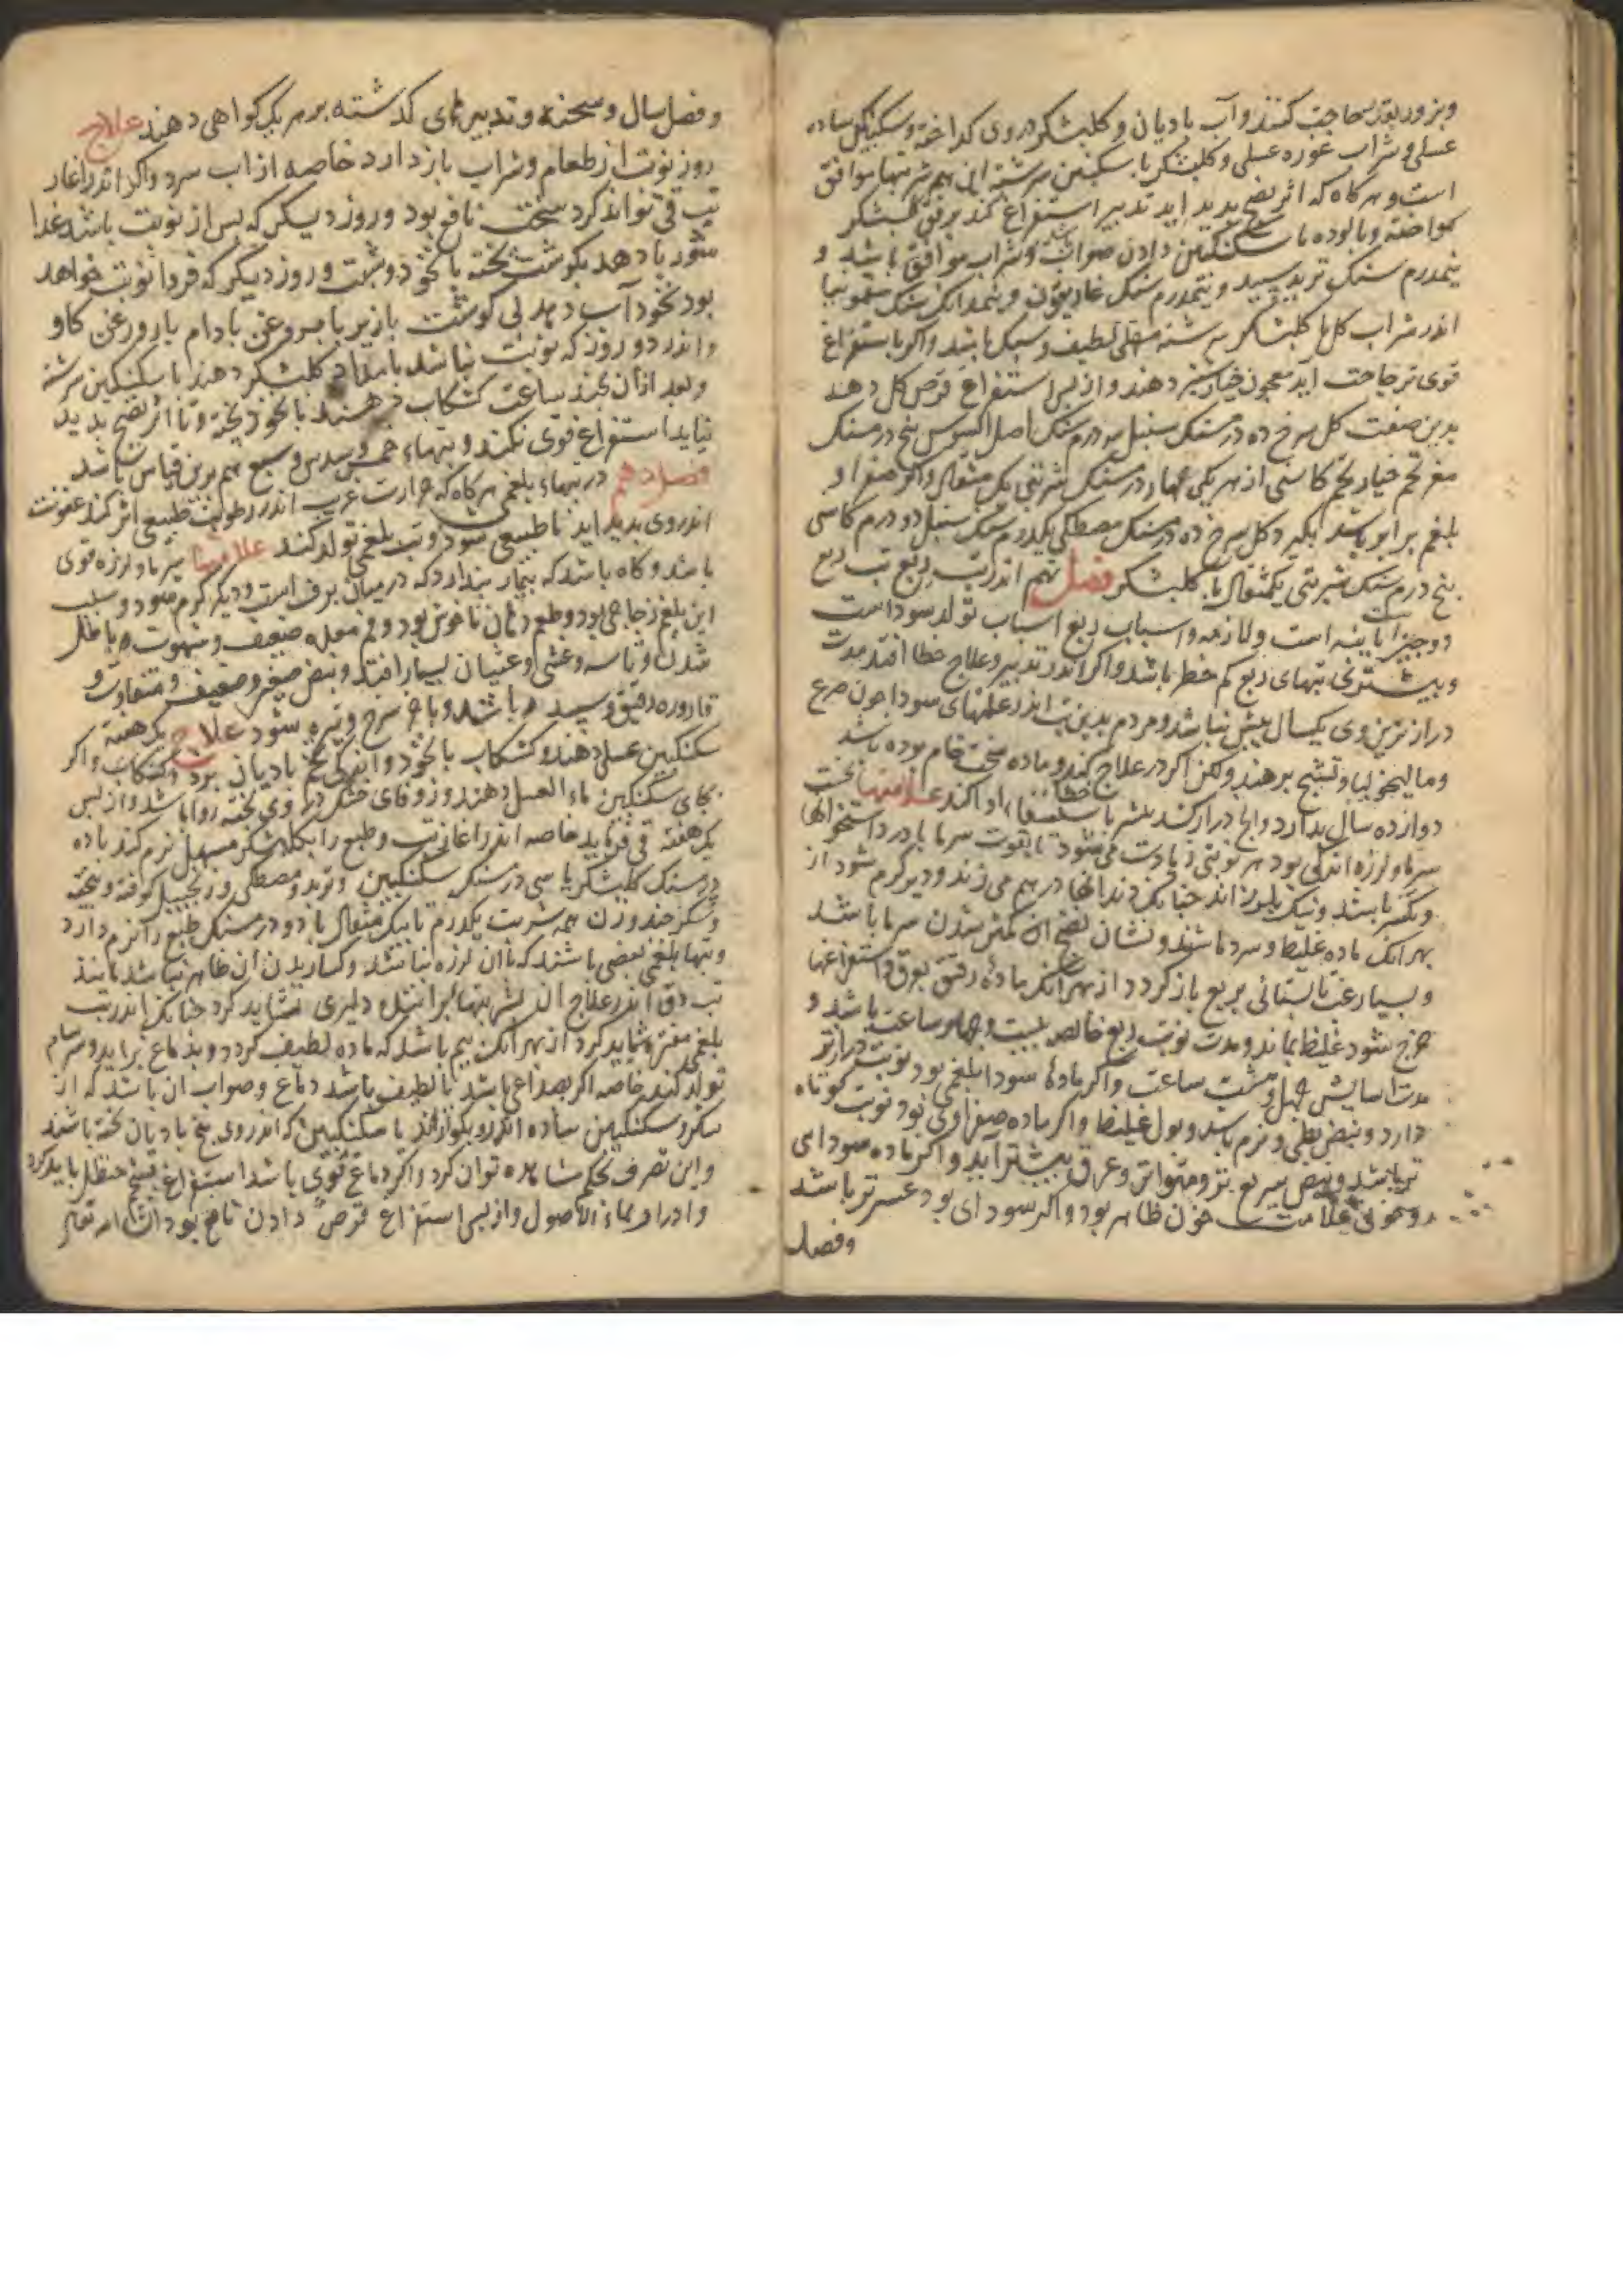 وبزور بقدر حاجت کنند و آب بادیان و کلبشکر در وی کداخته و سکنکبین ساده
عسلی و شراب غوره عسلی و کلبشکر با سکنکبین سرشته این همه شربتها موافق
است و هر کاه که اثر نضج پدید اید تدبیر استفراغ کند برفق کلبشکر
کداخته و پالوده با سکنکبین دادن صواب و شراب موافق باشد و
نیمدرم سنک تربد سپید و نیمدرم سنک غاریقون و نیمدانک سنک سقمونیا
اندر شراب کل یا کلبشکر سرشته مسهلی لطیف و سبک باشد و اکر باستفراغ
قوی تر حاجت آید معجون خیارشنبر دهند و از پس استفراغ قرص کل دهند
بدین صفت کل سرخ ده درمسنک سنبل سه درم سنک اصل السوس پنج درمسنک
مغز تخم خیار تخم کاسنی از هر یکی چهار درمسنک شربتی یک مثقال و اکر صفرا و
بلغم برابر باشد بکیرد کل سرخ ده درمسنک مصطکی یکدرم سنک سنبل دو درم کاسنی
پنج درم سنک شربتی یکمثقال با کلبشکر فصل نهم اندر تب ربع تب ربع
دو جنس است نایبه است و لازمه و اسباب ربع اسباب تولد سوداست
و بیشترین تبهای ربع کم خطر باشد و اکر اندر تدبیر و علاج خطا افتد مدت
دراز ترین وی یکسال بیش نباشد و مردم بدین تب اندر علتهای سودا چون صرع
و مالیخولیا و تشنج برهند ولکن اکر در علاج خطا کند و ماده سخت خام بوده باشد
دوازده سال بدارد و اکر دراز کشد بیشتر باستسقا ادا کند علامتها نخست
سرما و لرزه اندکی بود هر نوبتی زیادت می شود تا بقوت سرما با درد استخوانها
و تکسر باشد و نیک بلرزاند چنانک دندانها در هم می زند و دیر کرم شود از
بهر انک ماده غلیظ و سرد باشد و نشان نضج ان کمتر شدن سرما باشد
و بسیار غب تابستانی بربع باز کردد از بهر انک ماده رقیق بعرق و استفراغها
خرج شود غلیظ بماند و مدت نوبت ربع خالص بیست و چهار ساعت باشد و
مدت اسایش چهل و هشت ساعت و اکر ماده سودا بلغمی بود نوبت دراز تر
دارد و نبض بطی و نرم باشد و بول غلیظ و اکر ماده صفراوی بود نوبت کوتاه
تر باشد و نبض سریع تر و متواتر و عرق بیشتر آید و اکر ماده سودای
دموی علامت خون ظاهر بود و اکر سودای بود عسر تر باشد
وفصل
و فصل سال و سحنه و تدبیرهای کذشته بر هر یک کواهی دهند علاج
روز نوبت از طعام و شراب باز دارد خاصه از اب سرد و اکر اندر اغاز
تب قی تواند کرد سخت نافع بود و روز دیکر که پس از نوبت باشد غذا
شوربا دهد بکوشت پخته با نخود و شبت و روز دیکر که فردا نوبت خواهد
بود نخود آب دهد بی کوشت با زیربا بروغن بادام یا روغن کاو
و اندر دو روز که نوبت نباشد بامداد کلبشکر دهند با سکنکبین سرشته
و بعد از ان بچند ساعت کشکاب دهند با نخود پخته و تا اثر نضج پدید
نیاید استفراغ قوی نکند و تبهاء خمس و سدس و سبع هم برین قیاس باشد
فصل دهم در تبهاء بلغمی هر کاه که حرارت غریب اندر رطوبت طبیعی اثر کند عفونت
اندر وی پدید اید نا طبیعی شود و تب بلغمی تولد کند علامتها سرما و لرزه قوی
باشد و کاه باشد که بیمار پندارد که در میان برف است و دیر کرم شود و سبب
این بلغم زجاجی بود و طعم دهان ناخوش بود و فم معده ضعیف و شهوت باطل
شدن و تاسه و غشی و غثیان بسیار افتد و نبض صغیر و ضعیف و متفاوت و
قاروره رقیق و سپید باشد و باخر سرخ و تیره شود علاج یک هفته
سکنکبین عسلی دهند و کشکاب با نخود و اندکی بیخ بادیان کشکاب و اکر
بجای سکنکبین ماء العسل دهند و زوفای خشک در وی پخته روا باشد و از پس
یک هفته قی فرماید خاصه اندر اغاز تب و طبع را بکلبشکر مسهل نرم کند ده
درمسنک کلبشکر با سی درمسنک سکنکبین و تربد و مصطکی و زنجبیل کوفته و بیخته
و شکر چند وزن همه شربت یکدرم تا یک مثقال یا دو درمسنک طبع را نرم دارد
و تبها بلغمی بعضی باشد که با ان لرزه نباشد و کساریدن ان ظاهر نباشد مانند
تب دق اندر علاج ان بشربتها دلیری نشاید کرد چنانک اندر تب
بلغمی مفتره شاید کرد از بهر انک بیم باشد که ماده لطیف کردد و بدماغ براید و سرسام
تولد کند خاصه اکر صداعی باشد یا لطیف باشد دماغ و صواب ان باشد که از
شکر و سکنکبین ساده اندر نکذرند یا سکنکبین که اندر وی بیخ بادیان پخته باشند
و این تصرف بحکم مشاهده توان کرد و اکر دماغ قوی باشد استفراغ بشحم حنظل باید کرد
و ادرار بماء الاصول و از پس استفراغ قرص دادن نافع بود ان شاء الله تعالی